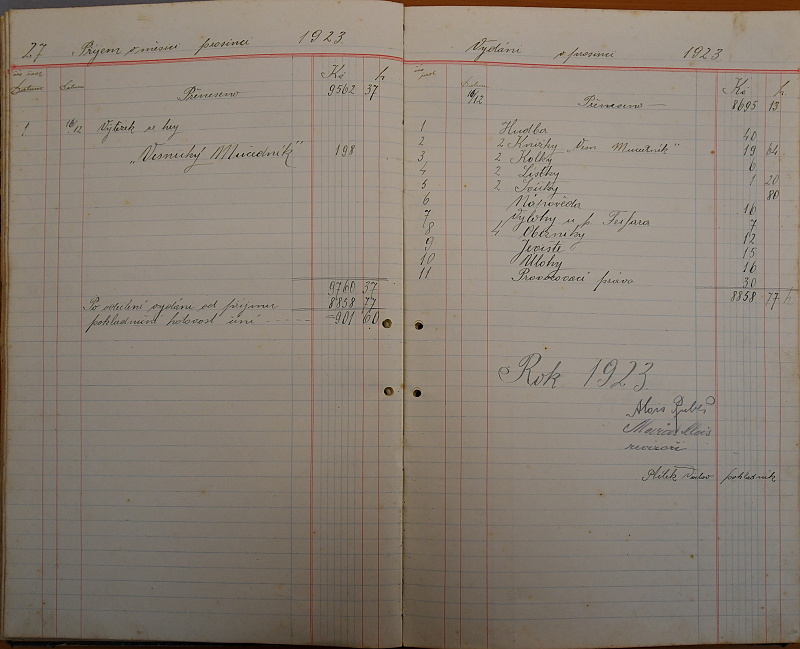 27 Příjem v měsíci prosinci 1923
Kč h
Datum Datum
Přeneseno 9562 37
1. 16/12 Výtěžek ze hry
„Vesnický Mučedník" 198
9760 37
Po odečtení vydání od příjmu 8858 77
pokladniční hotovost činí 901 60
Vydání v prosinci 1923
Datum Kč h
16/12 Přeneseno 8695 13
1 Hudba 40
2 2 Knížky „Ves. Mučedník" 19 64
3 2 Kolky 6
4 2 Lístky 1 20
5 2 80
6 Nápověda 16
7 Výlohy u p. 7
8 4 12
9 Jeviště 15
10 Úlohy 16
11 Provozovací právo 30
8858 77 h
Rok 1923.
Alois
revisoři
pokladník